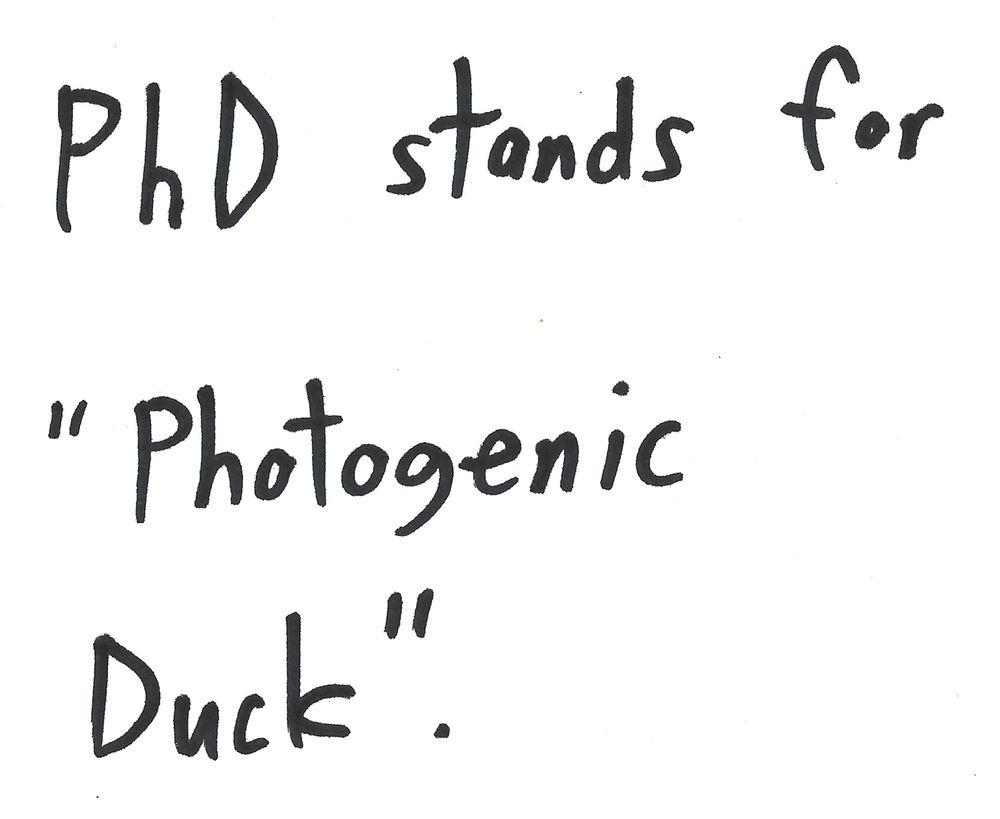 PhD stands for
"Photogenic
Duck".